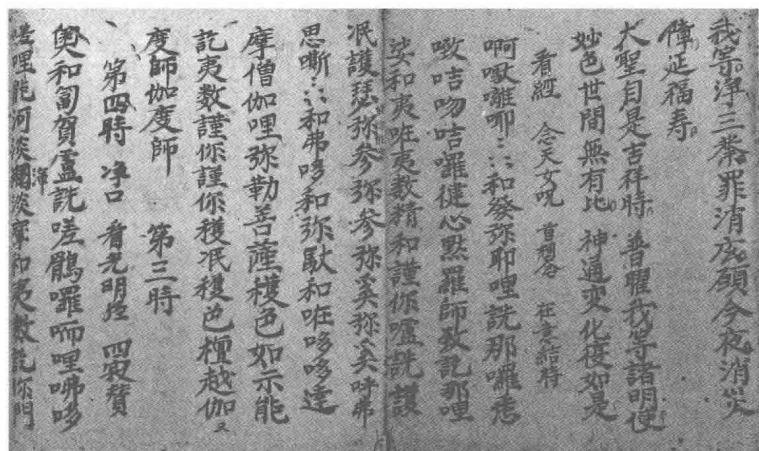 我等淨三業罪消底願今夜消災
障延福寿
大聖自是吉祥時 普曜我等諸明使
妙色世間無有比 神通变化復如是
看經 念天女呪 首想念 在意結時
啊㗲囄㖿 和癹弥耶哩詵那囉悉
㗲咭吻咭囉倢心默羅師致訖那哩
娑和夷咗夷数精和謹你嚧詵謨
泯護瑟弥参弥参弥奚弥奚呼弗
思嘶 和弗哆和弥馱和咗哆哆達
摩僧伽哩弥勒菩薩穫色如示能
訖夷数謹你謹你穫泯穫邑檀越伽
度師伽度師 第三時
第四時 净口 看光明經 四寂贊
奧和匐賀盧詵嗟鶻囉㖇哩哆
哩能河淡渾和夷数訖你門